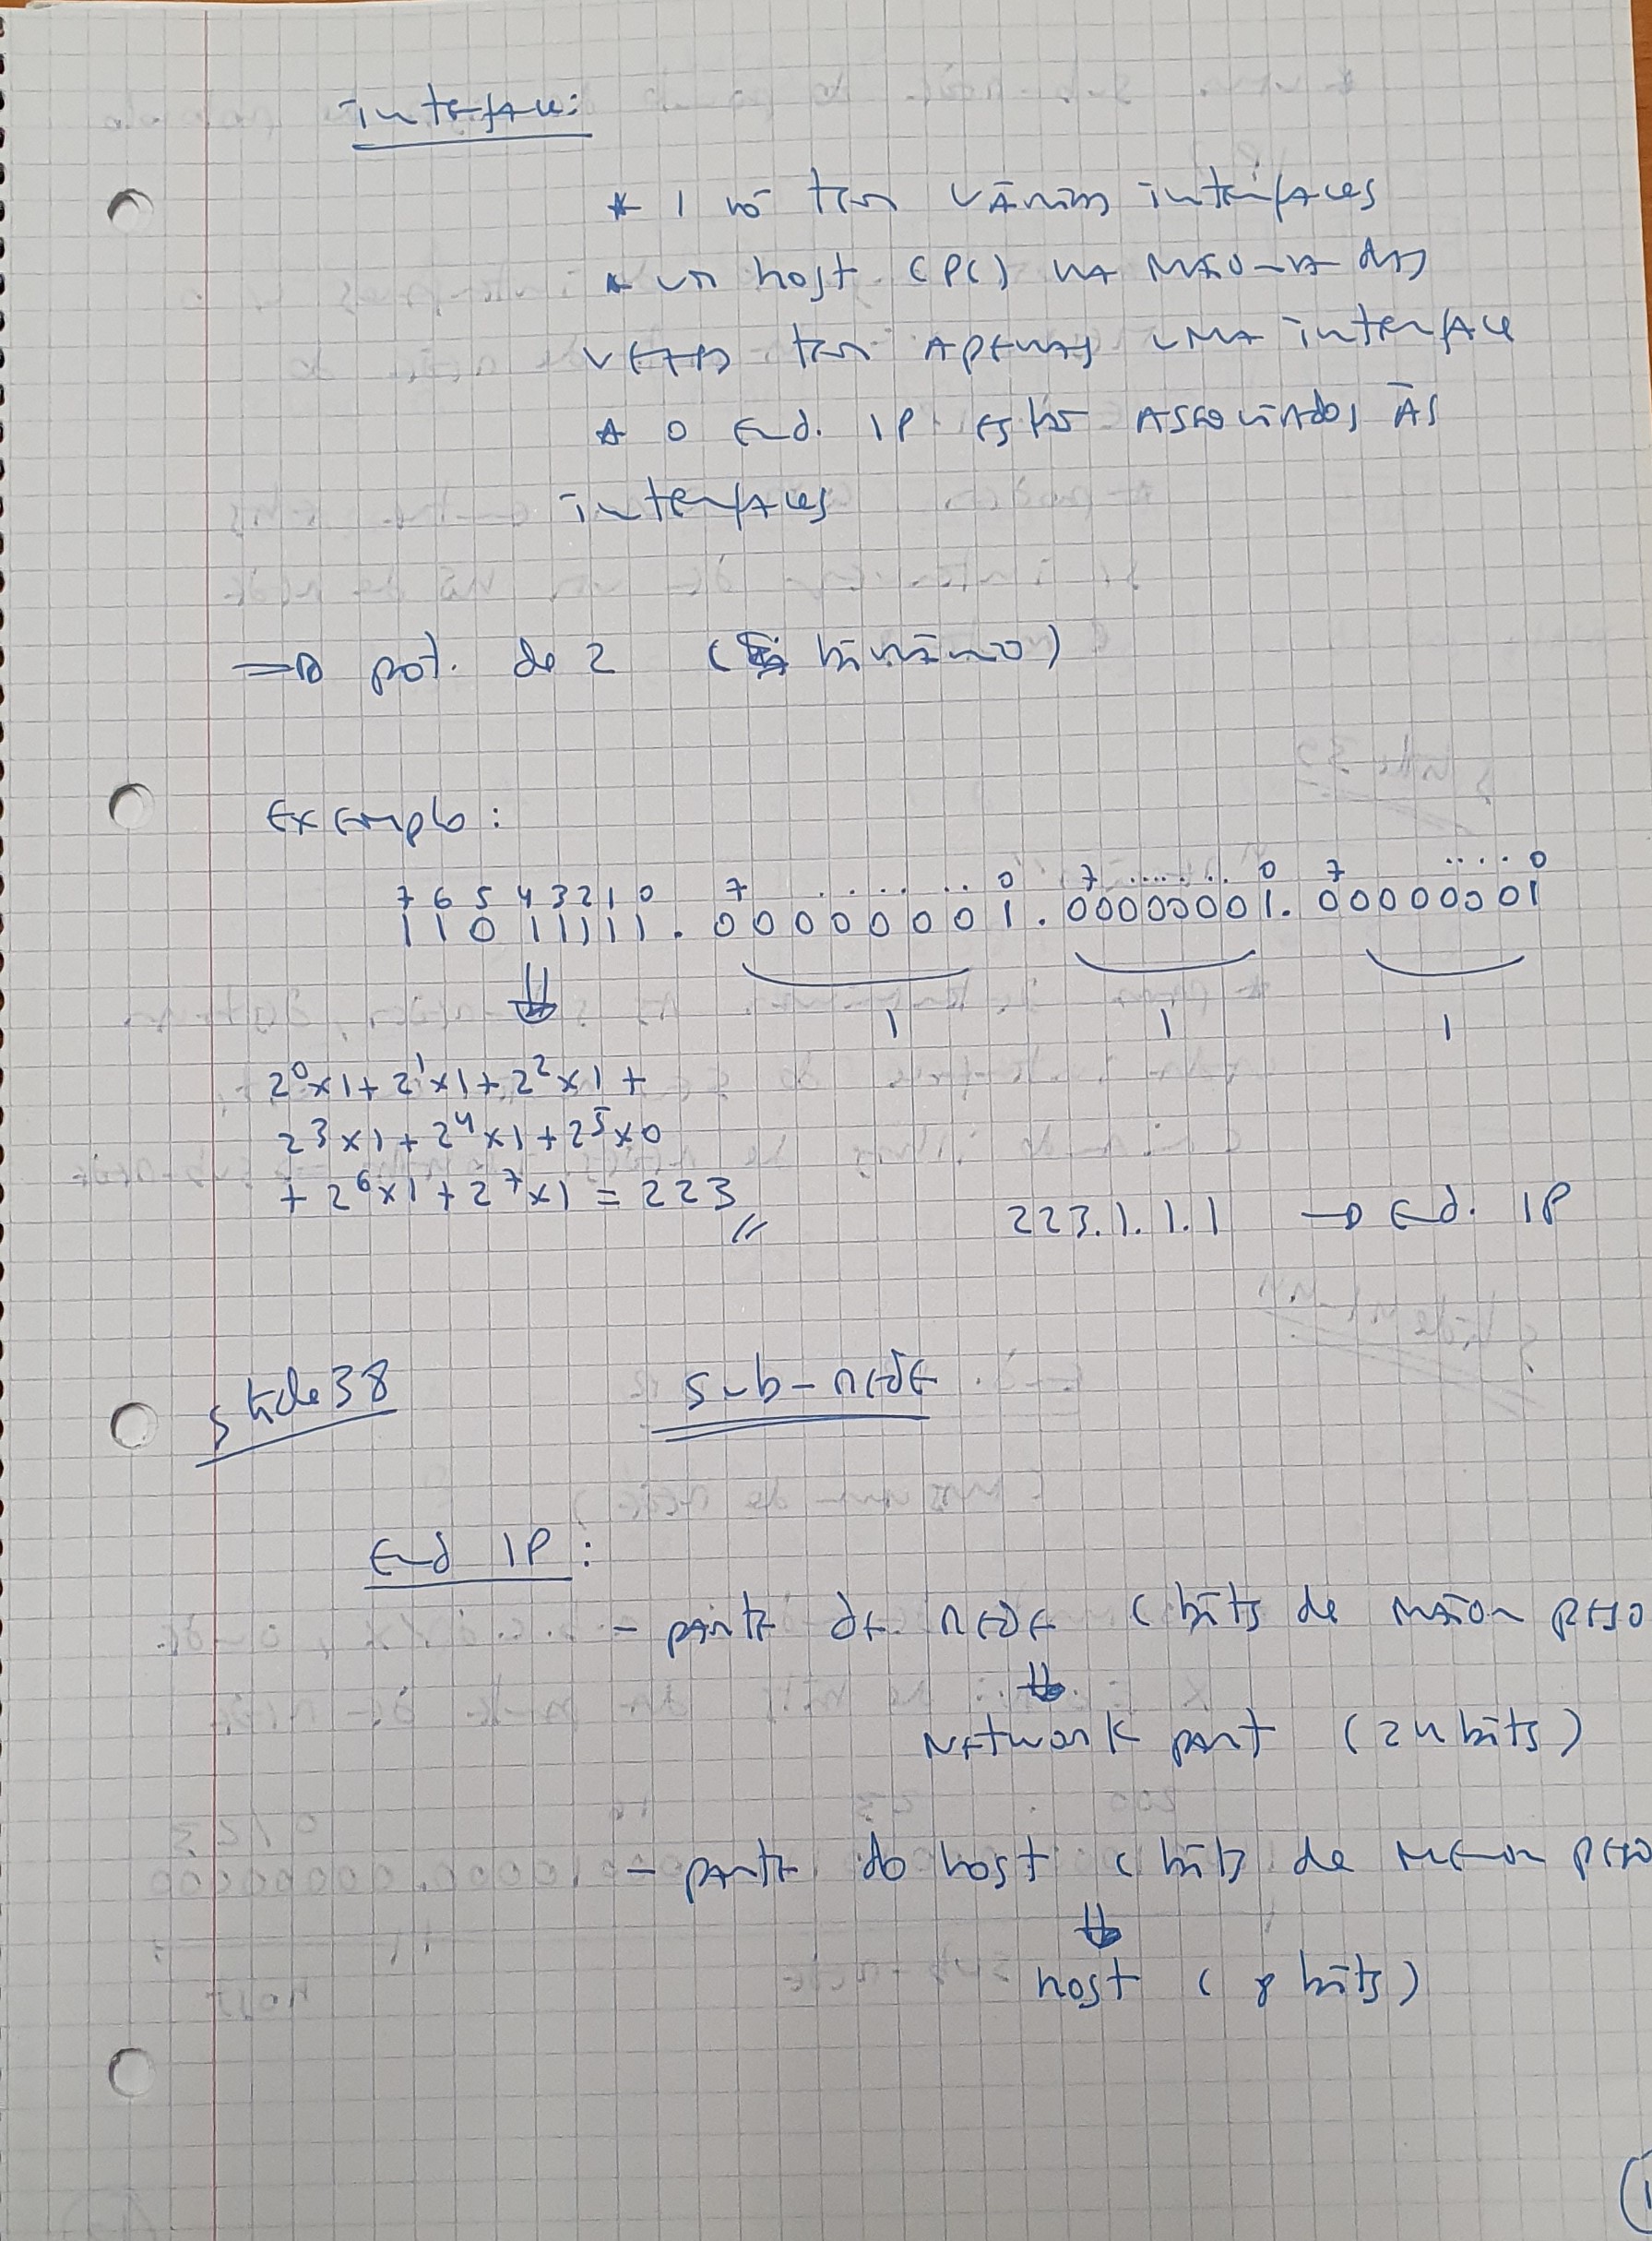 interface:
* 1 nó tem vários interfaces
* um host (PC) na maioria das
vezes tem apenas uma interface
* o End. IP estão associados às
interfaces
=> pot. de 2 ( binário)
Exemplo:
7 6 5 4 3 2 1 0 7 ...... 0 7 ...... 0 7 .... 0
11011111.00000001.00000001.00000001
⇓ 1 1 1
2^0x1+2^1x1+2^2x1+
2^3x1+2^4x1+2^5x0
+2^6x1+2^7x1=223
223.1.1.1 → End. IP
slide 38 sub-rede
End IP:
- parte de rede (bits de maior peso
⇓
Network part (24 bits)
- parte do host (bits de menor peso
⇓
host (8 bits)